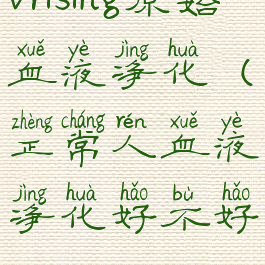 xuě yè jìng huà
血液净化（
zhèng cháng rén xuě yè
正常人血液
jìng huà hǎo bù hǎo
净化好不好